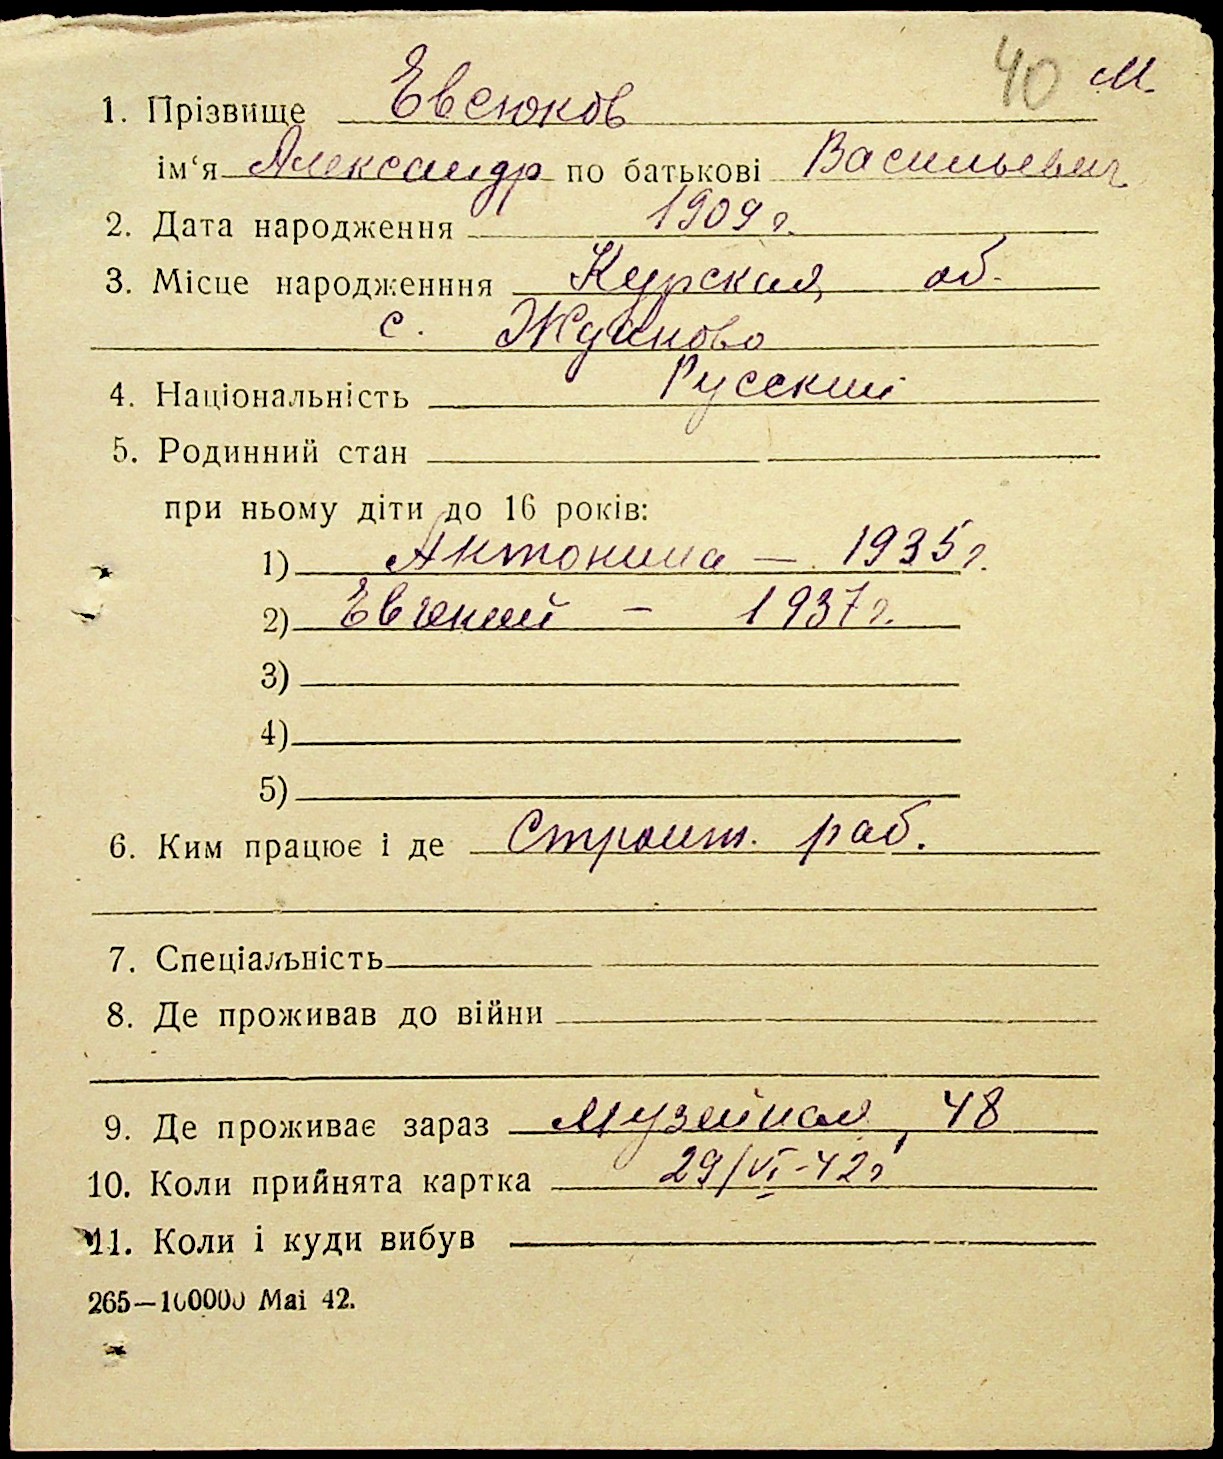 40 М.
1. Прізвище Евсюков
ім‘я Александр по батькові Васильевич
2. Дата народження 1909 г.
3. Місце народженння Курская об.
с. Жданово
4. Національність Русский
5. Родинний стан
при ньому діти до 16 років:
1) Антонина — 1935 г.
2) Евгений – 1937 г.
3)
4)
5)
6. Ким працює і де Строит. раб.
7. Спеціальність
8. Де проживав до війни
9. Де проживає зараз Музейная, 48
10. Коли прийнята картка 29/VI-42 г
11. Коли і куди вибув
265—100000 Mai 42.